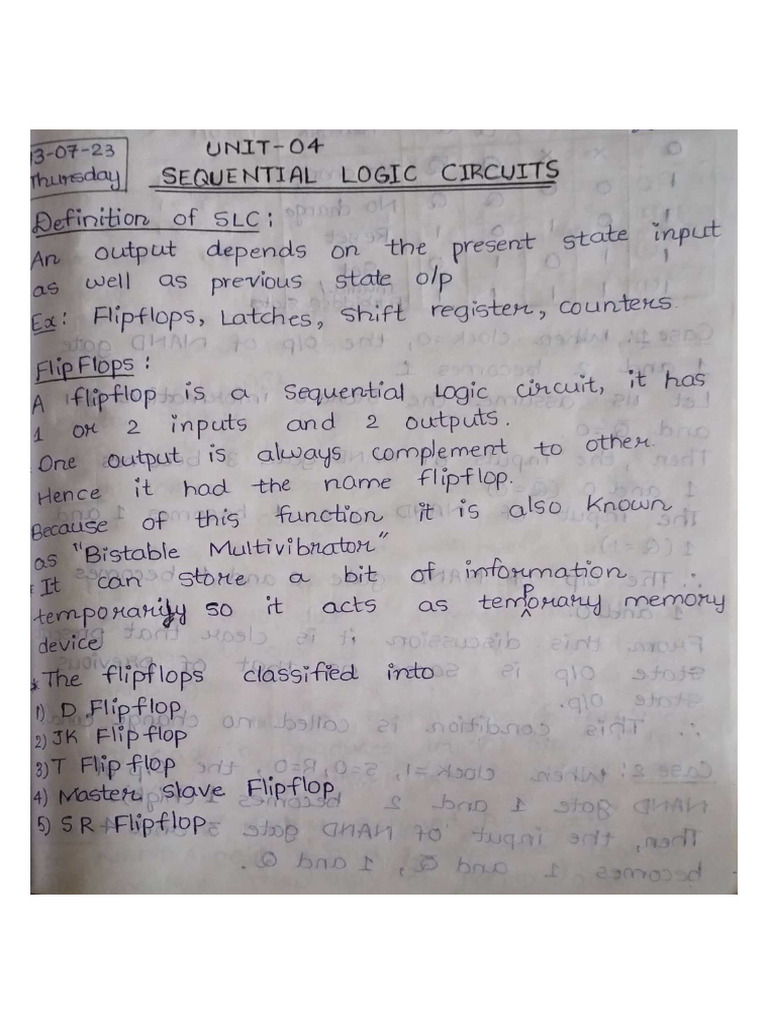 13-07-23
Thursday
UNIT-04
SEQUENTIAL LOGIC CIRCUITS
Definition of SLC:
An output depends on the present state input
as well as previous state o/p
Ex: Flipflops, Latches, Shift register, counters.
Flip Flops:
A flipflop is a Sequential Logic circuit, it has
1 or 2 inputs and 2 outputs.
One output is always complement to other.
Hence it had the name flipflop.
Because of this function it is also known
as "Bistable Multivibrator"
* It can store a bit of information
temporarily so it acts as temporary memory
device
* The flipflops classified into
1) D Flipflop
2) JK Flipflop
3) T Flipflop
4) Master Slave Flipflop
5) SR Flipflop